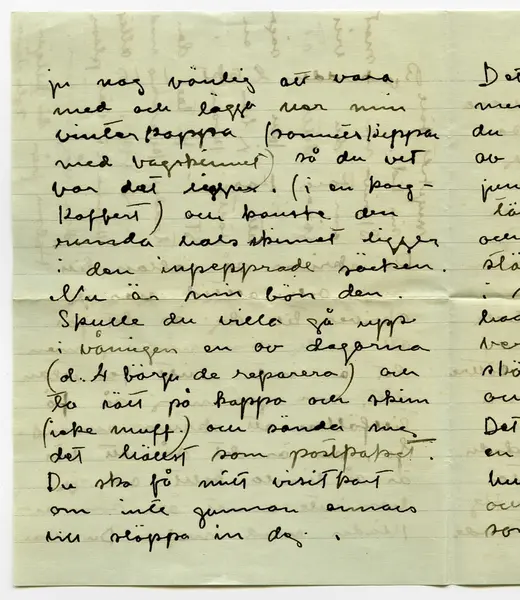 ju nog vänlig att vara
med och lägga ner min
vinterkappa (
med            ) så du vet
var det ligger. (i en korg-
koffert) och kanske den
runda halsskinnet ligger
i den inpepprade säcken.
Nu är min bön den.
Skulle du vilja gå upp
i våningen en av dagarna
(d. 4 börja de reparera) och
ta rätt på kappa och skinn
(icke muff.) och sända mig
det hälest som postpaket.
Du ska få mitt visitkort
om inte gumman annars
vill släppa in dig.
Det
du
av
och
i
Det
en
och